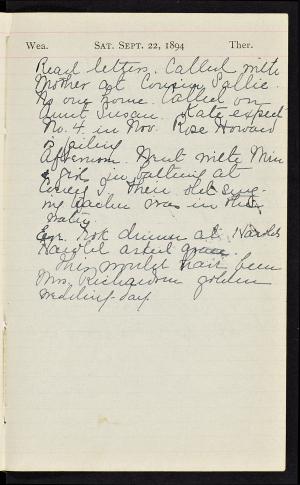 Wea. SAT. SEPT. 22, 1894 Ther.
Read letters. Called with
Mother at Cousin Sallie.
No one home. Called on
Aunt Susan. Kate expect
No. 4. in Nov. Rose Howard
is failing
Afternoon. Went with Min
& girls in bathing at
Then the
teacher was in the
water
Eve. Took dinner at Nardes
Harold asked grace.
This would have been
Mrs. Richardson golden
wedding-day